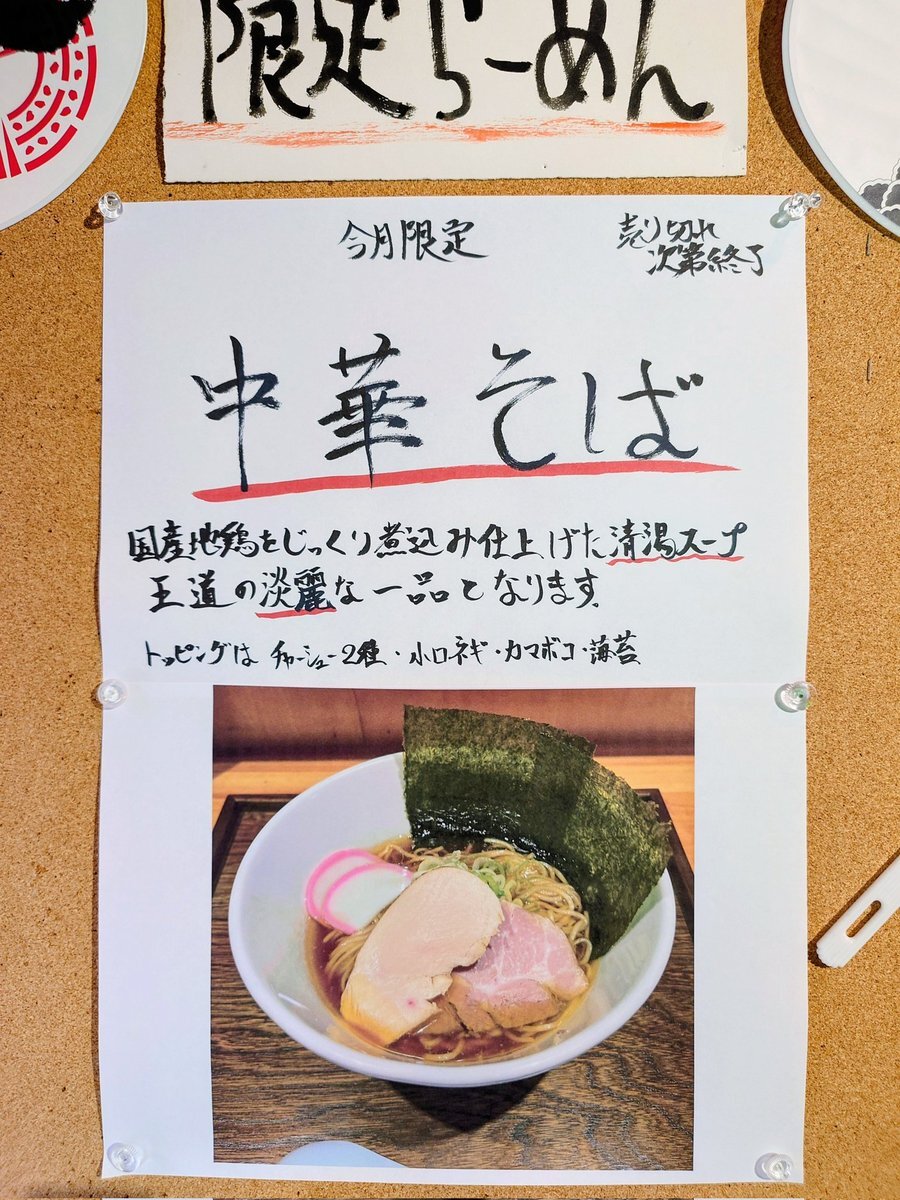 限定らーめん
今月限定
売り切れ
次第終了
中華そば
国産地鶏をじっくり煮込み仕上げた清湯スープ
王道の淡麗な一品となります。
トッピングは チャーシュー2種・小口ネギ・カマボコ・薄苔